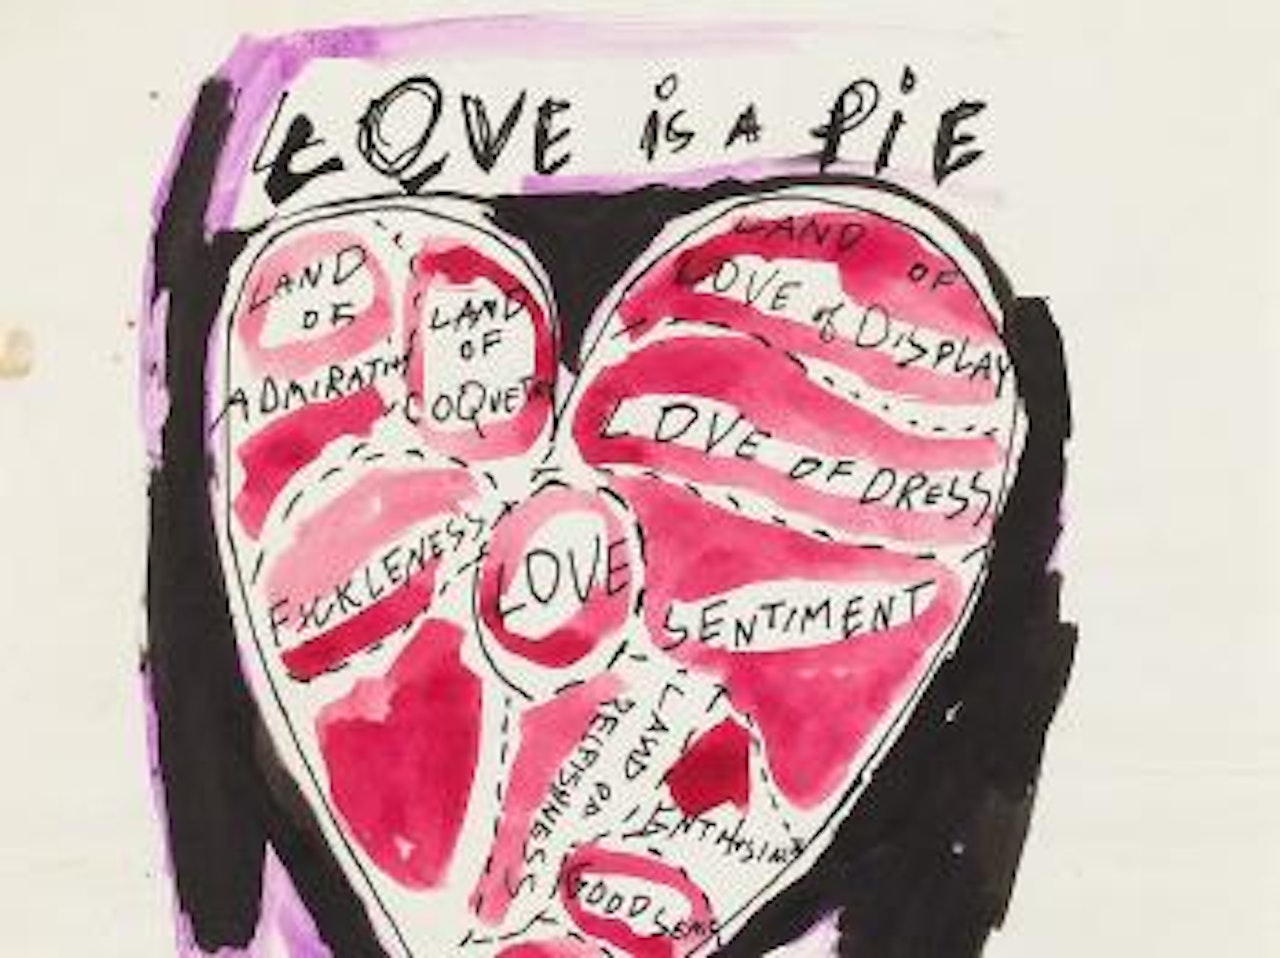 LOVE is A PiE
LAND
OF
ADMIRATIN
LAND
OF
COQUETR
LAND OF
LOVE of DISPLAY
LOVE OF DRESS
FICKLENESS
LOVE
SENTIMENT
SELFISHNESS
LAND OF
ENTHUSIM
GOOD SENS